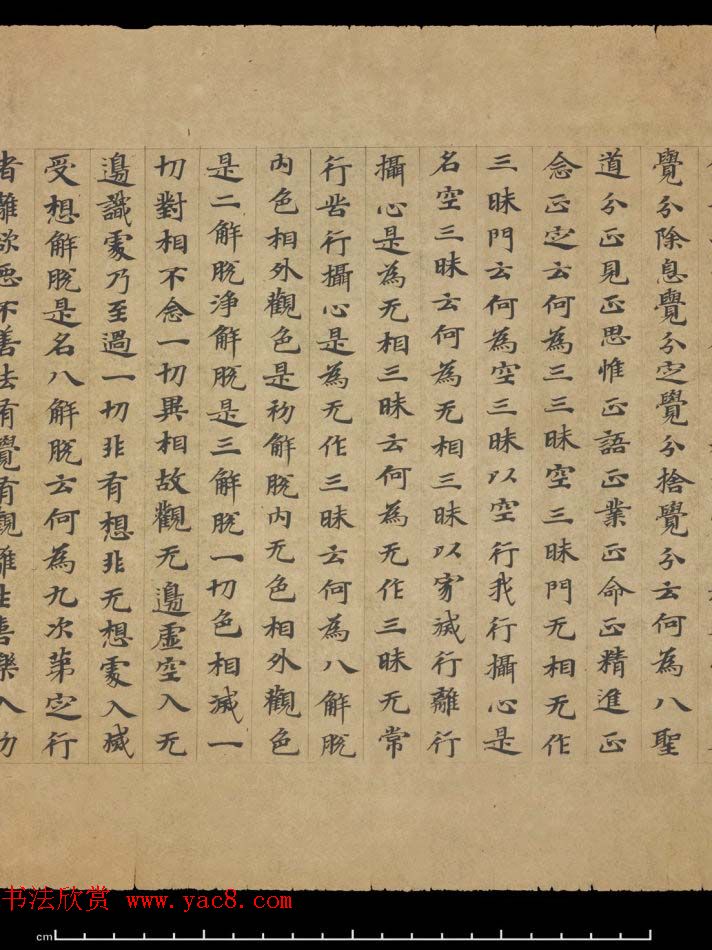 覺分除息覺分㝎覺分捨覺分云何為八聖
道分正見正思惟正語正業正命正精進正
念正㝎云何為三三昧空三昧門无相无作
三昧門云何為空三昧以空行我行攝心是
名空三昧云何為无相三昧以寂滅行離行
攝心是為无相三昧云何為无作三昧无常
行苦行攝心是為无作三昧云何為八解脫
內色相外觀色是初解脫內无色相外觀色
是二解脫淨解脫是三解脫一切色相滅一
切對相不念一切異相故觀无邊虛空入无
邊識處乃至過一切非有想非无想處入滅
受想解脫是名八解脫云何為九次第㝎行
者離欲惡不善法有覺有觀離生喜樂入初
书法欣赏 www.yac8.com
cm